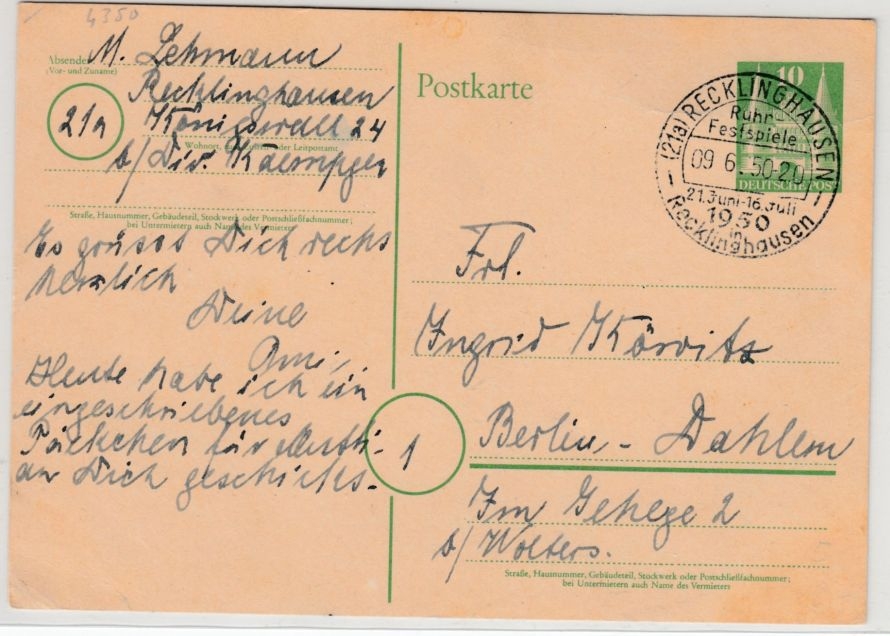 4350
Absender
(Vor- und Zuname)
M. Lehmann
Recklinghausen
21a
Königswall 24
Wohnort, oder Leitpostamt
b/ Dir. Kaempger
Straße, Hausnummer, Gebäudeteil, Stockwerk oder Postschließfachnummer;
bei Untermietern auch Name des Vermieters
Es grüsst Dich recht
herzlich
Deine
Omi,
Heute habe ich ein
eingeschriebenes
Päckchen für Mutti
an Dich geschickt.
Postkarte
10
DEUTSCHE POST
(21a) RECKLINGHAUSEN
Ruhr
Festspiele
09.6.50-20
21.Juni-16.Juli
1950
in
Recklinghausen
Frl.
Ingrid Körvitz
1
Berlin - Dahlem
Im Gehege 2
b/ Wolters.
Straße, Hausnummer, Gebäudeteil, Stockwerk oder Postschließfachnummer;
bei Untermietern auch Name des Vermieters